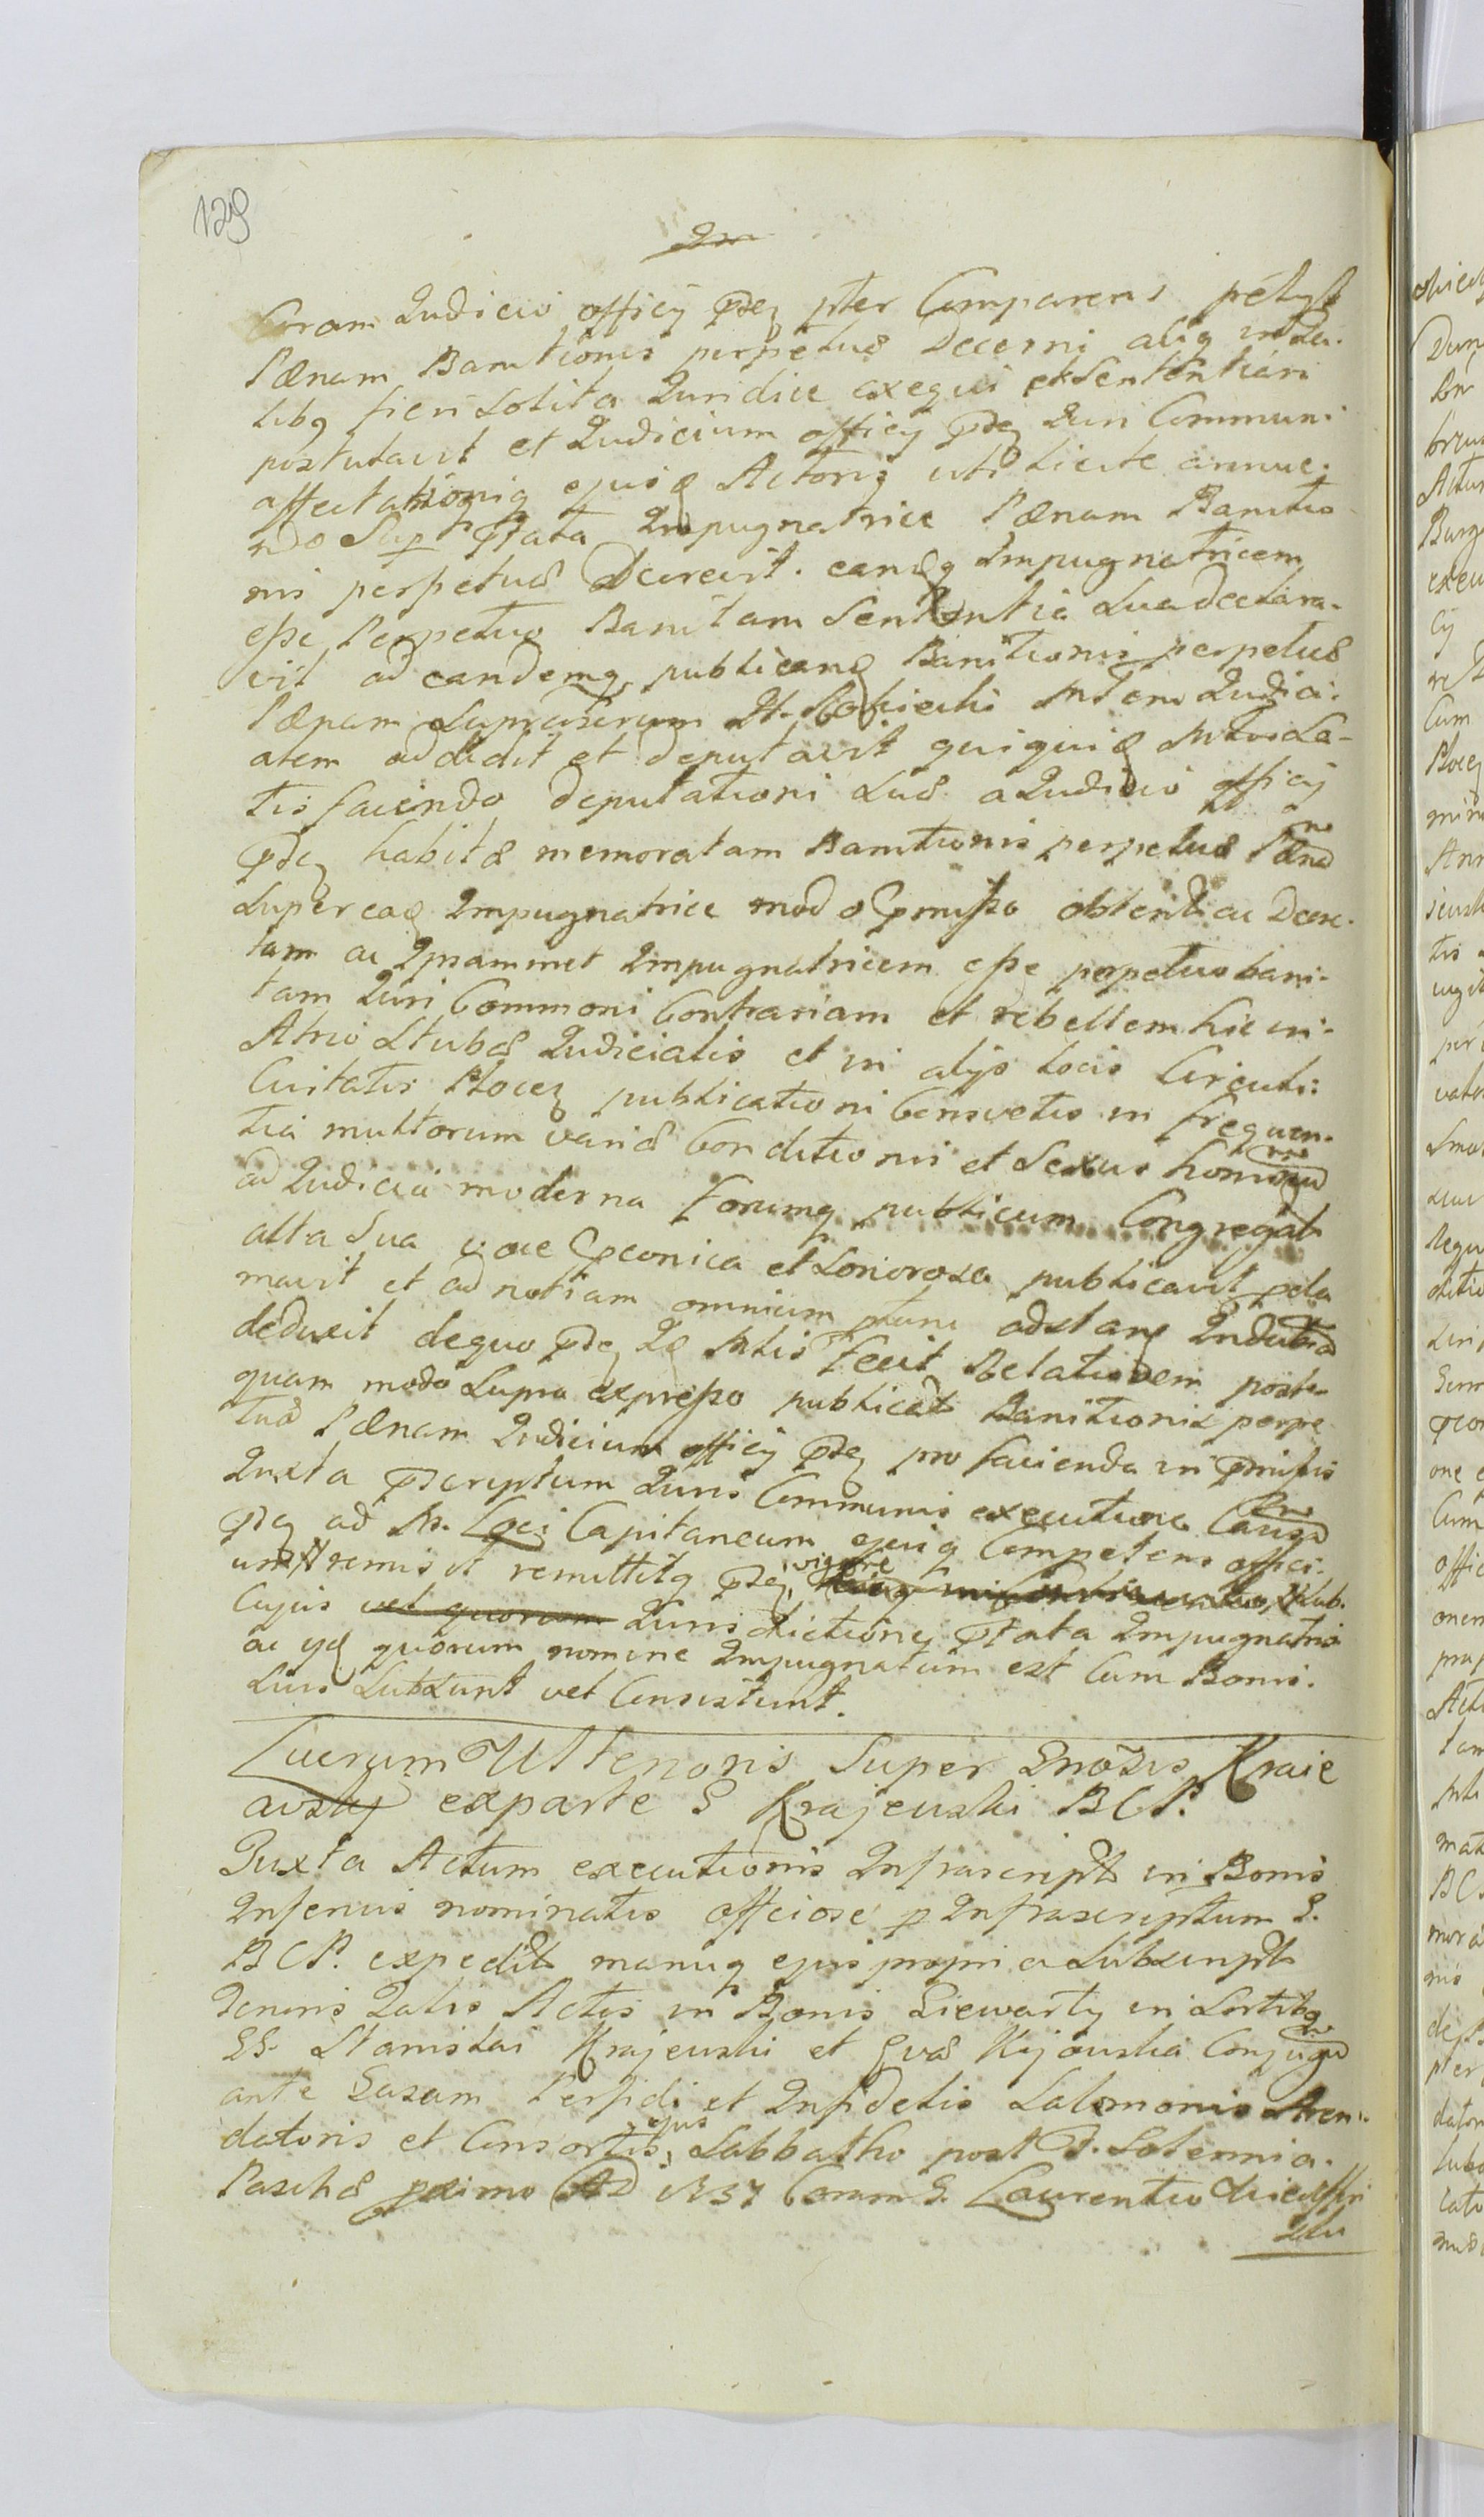 129
Coram Judicio officij pter Comparens petyt
Pænam Banitionis perpetuæ Decerni aliaq in ta-
libq fieri Solita Juridice exequi et Sententiari
postulavit et Judicium officij Juri Communi
affectationiq ejusd Actoris uti licite annue-
ndo Sup Ptata Impugnatrice Pænam Banitio
nis perpetuæ Decrevit. eandq Impugnatricem
eße Perpetuo Banitam Sententia Sua declara-
vit ad eandemq publicand Banitionis perpetuæ
Pænam Suprascrum Mlem Judici-
alem addidit et deputavit quiquid Mtus Sa-
tis faciendo deputationi Suæ a Judicio officij
habitæ memoratam Banitionis perpetuæ Pænam
Super ead Impugnatrice modo Pmißo obtent ac Decre-
tam ac Ipsammet Impugnatricem eße perpetuo bani-
tam Juri Commoni Contrariam et rebellem hic in
Atrio Stubæ Judicialis et in alijs locis Circuli:
Civitatis Plocen publicationi Consvetis in frequen-
tia multorum variæ Conditionis et Sexus hominu
ad Judicia moderna Forumq publicum Congregat
alta Sua voce Pconica et Sonorosa publicavit pcla
mavit et ad notiam omnium ptum adstant Indubita
deduxit dequo Mtis Fecit Relationem post-
quam modo Supra expreßo publicat Banitionis perpe
tuæ Pænam Judicium officij pro facienda in Pmißis
Juxta Pscriptum Juris Communis executione Causa
ad M. Loci Capitaneum ejusq Competens offici-
um remisit remittitq vigore Sub.
Cujus vel quorum Jurisdictione Ptata Impugnatrix
ac ijd quorum nomine Impugnatum est Cum Bonis.
Suis Subsunt vel Consistunt.
Lucrum Ulterioris Super Gnosis Kraie
ewskj exparte G Krajewski BCP.
Juxta Actum executionis Infrascript in Bonis
Inferius nominatis officiose p Infrascriptum G.
BCP. expedit manuq ejus propria Subscript
Tenoris Talis Actis in Bonis Siewarty in Sortibq
GG. Stanislai Krajewski et Evæ Kijouska Conjugu
ante Gazam Perfidi et Infidelis Salomonis Aren-
datoris et Consortis ejus Sabbatho post F. Solennia.
Paschæ pximo AD 1737 Coram G. Laurentio